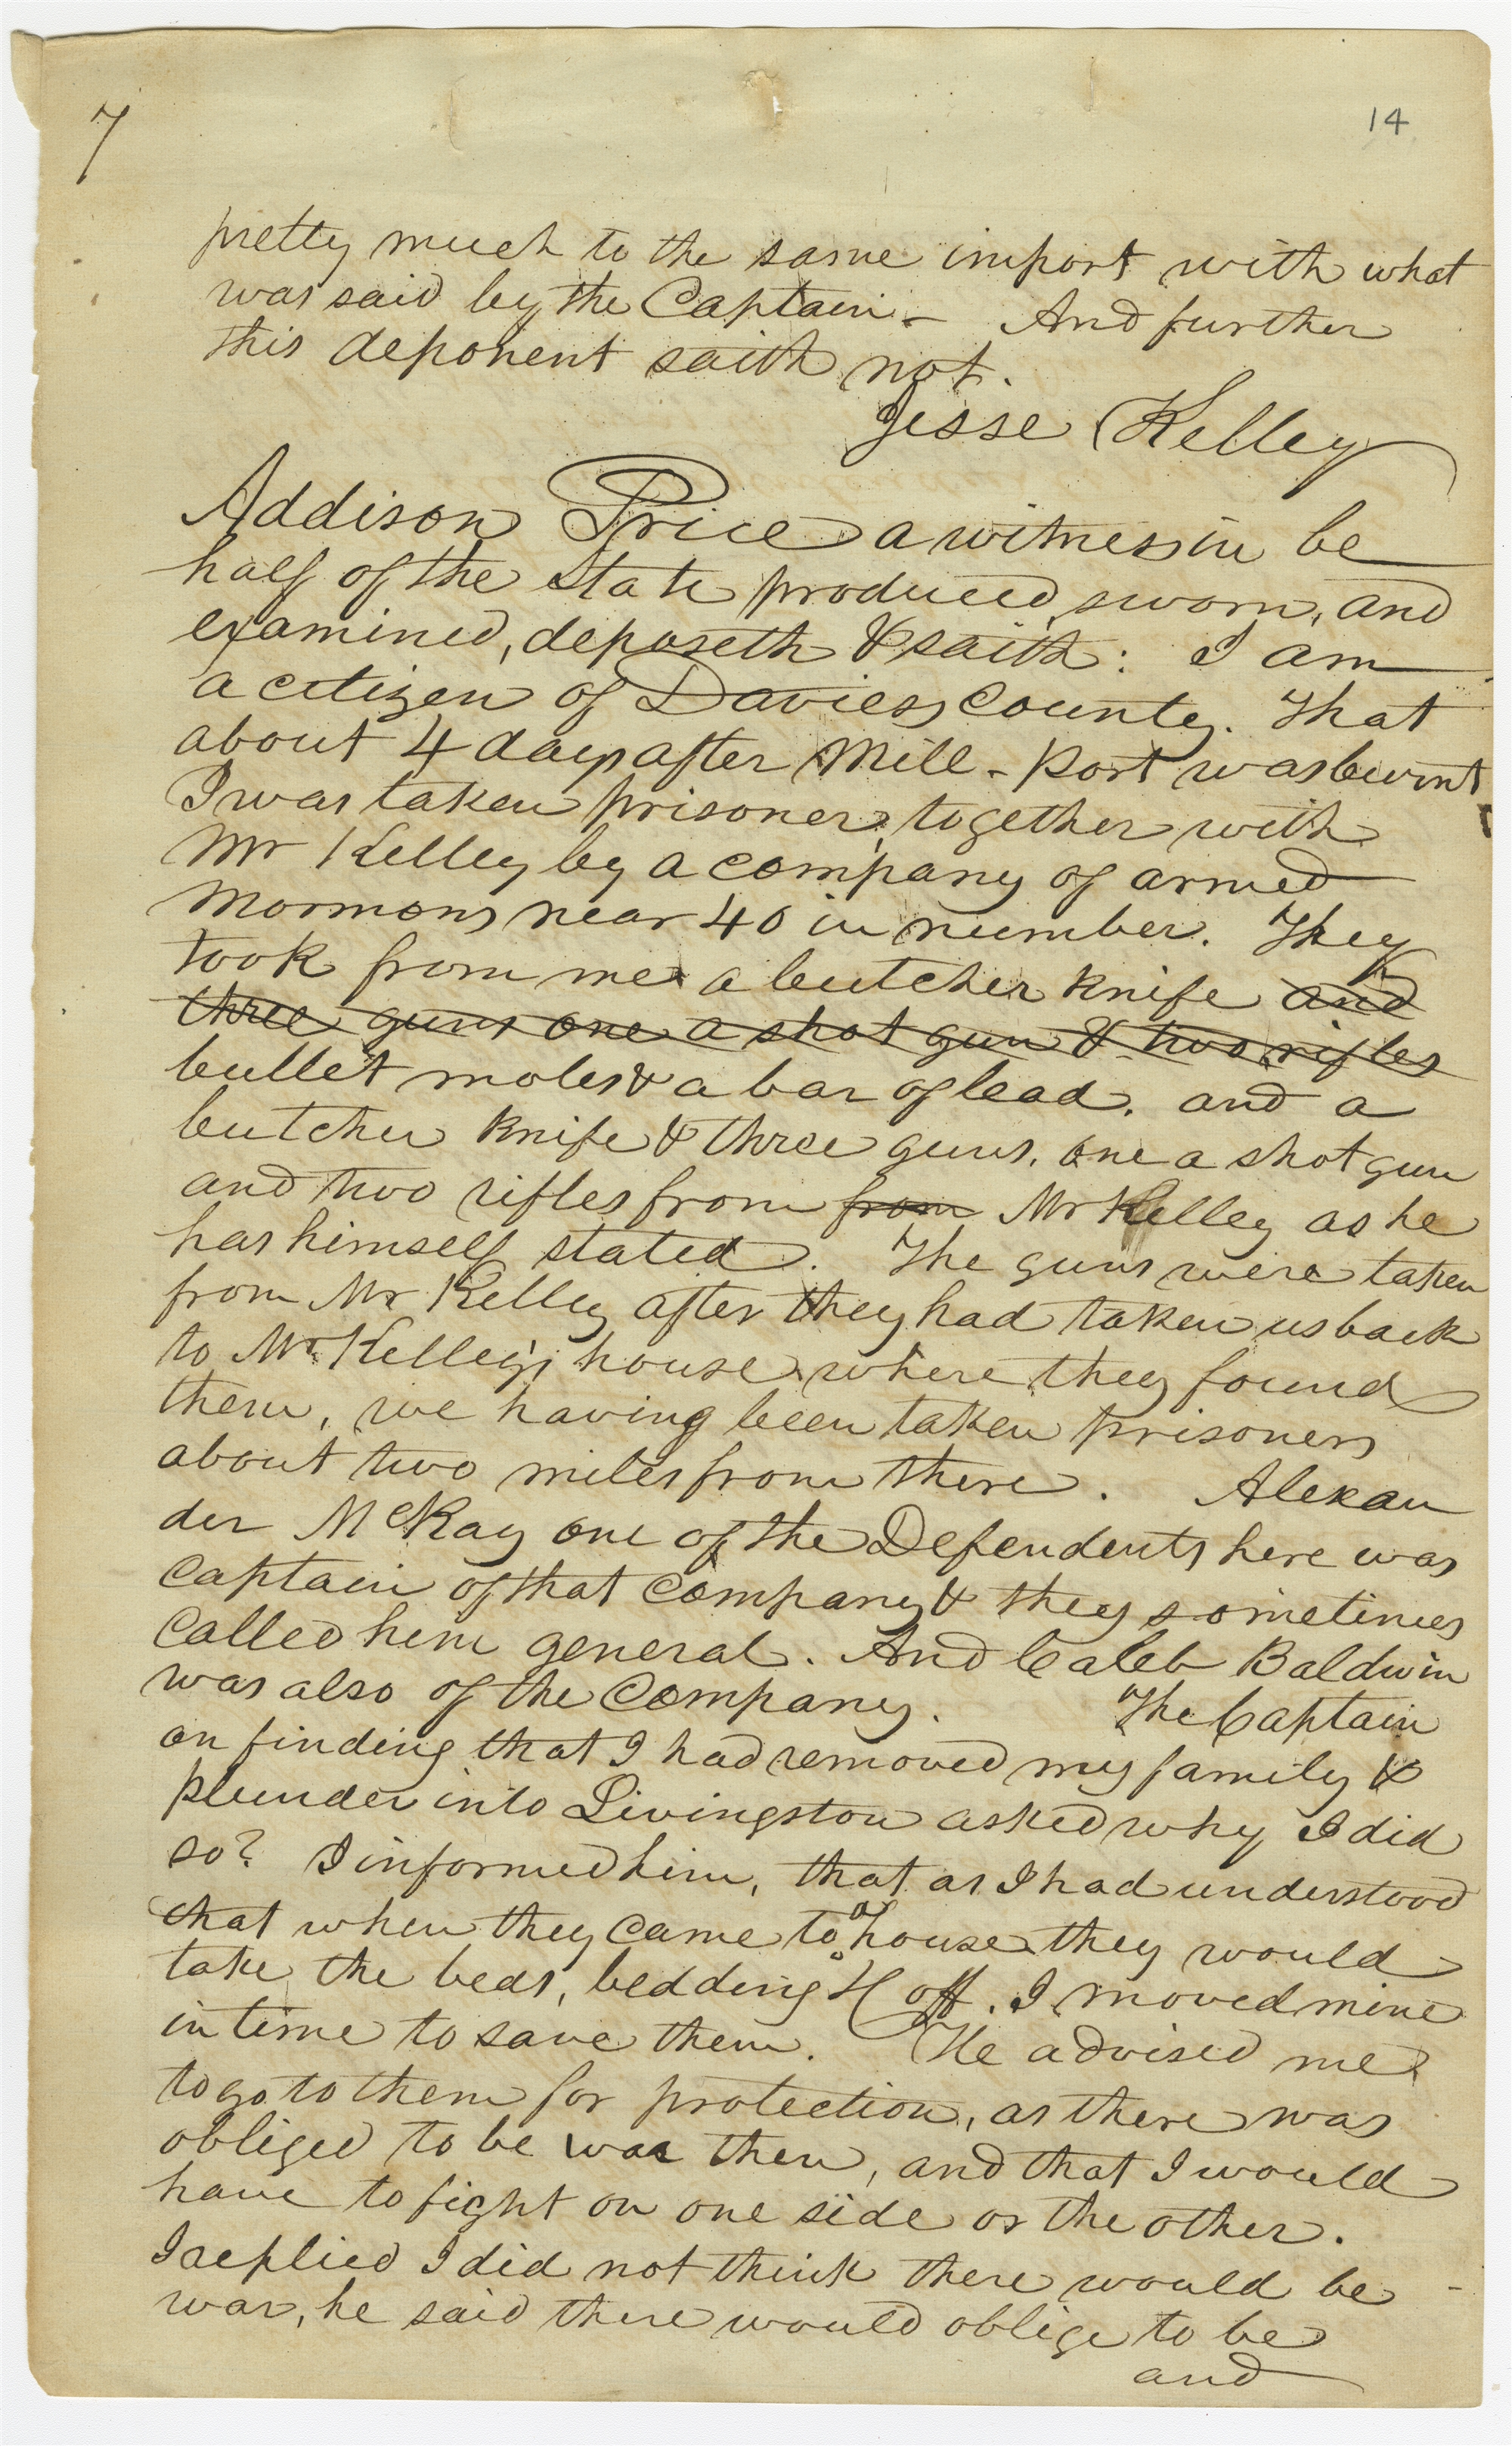 7
14
pretty much to the same import with what
was said by the Captain. – And further
this deponent saith not.
Jesse Kelley
Addison Price a witness in be
half of the State produced, sworn, and
examined, deposeth & saith: I am
a citizen of Daviess County. That
about 4 days after Mill-Port was burnt
I was taken prisoner, together with
Mr Kelley by a company of armed
Mormons near 40 in number. They
took from me a butcher knife and
three guns one a shot gun & two rifles
bullet moles & a bar of lead. and a
butcher knife & three guns, one a shot gun
and two rifles from from Mr Kelley as he
has himself stated. The guns were taken
from Mr Kelley after they had taken us back
to Mr Kelley's house where they found
them, we having been taken prisoners
about two miles from there. Alexan
der McKay one of the Defendents here was
captain of that company & they sometimes
called him general. And Caleb Baldwin
was also of the Company. The Captain
on finding that I had removed my family &
plunder into Livingston asked why I did
so? I informed him, that as I had understood
that when they came to a house they would
take the beds, bedding & off. I moved mine
in time to save them. He advised me
to go to them for protection, as there was
obliged to be war then, and that I would
have to fight on one side or the other.
I replied I did not think there would be
war, he said there would oblige to be
and